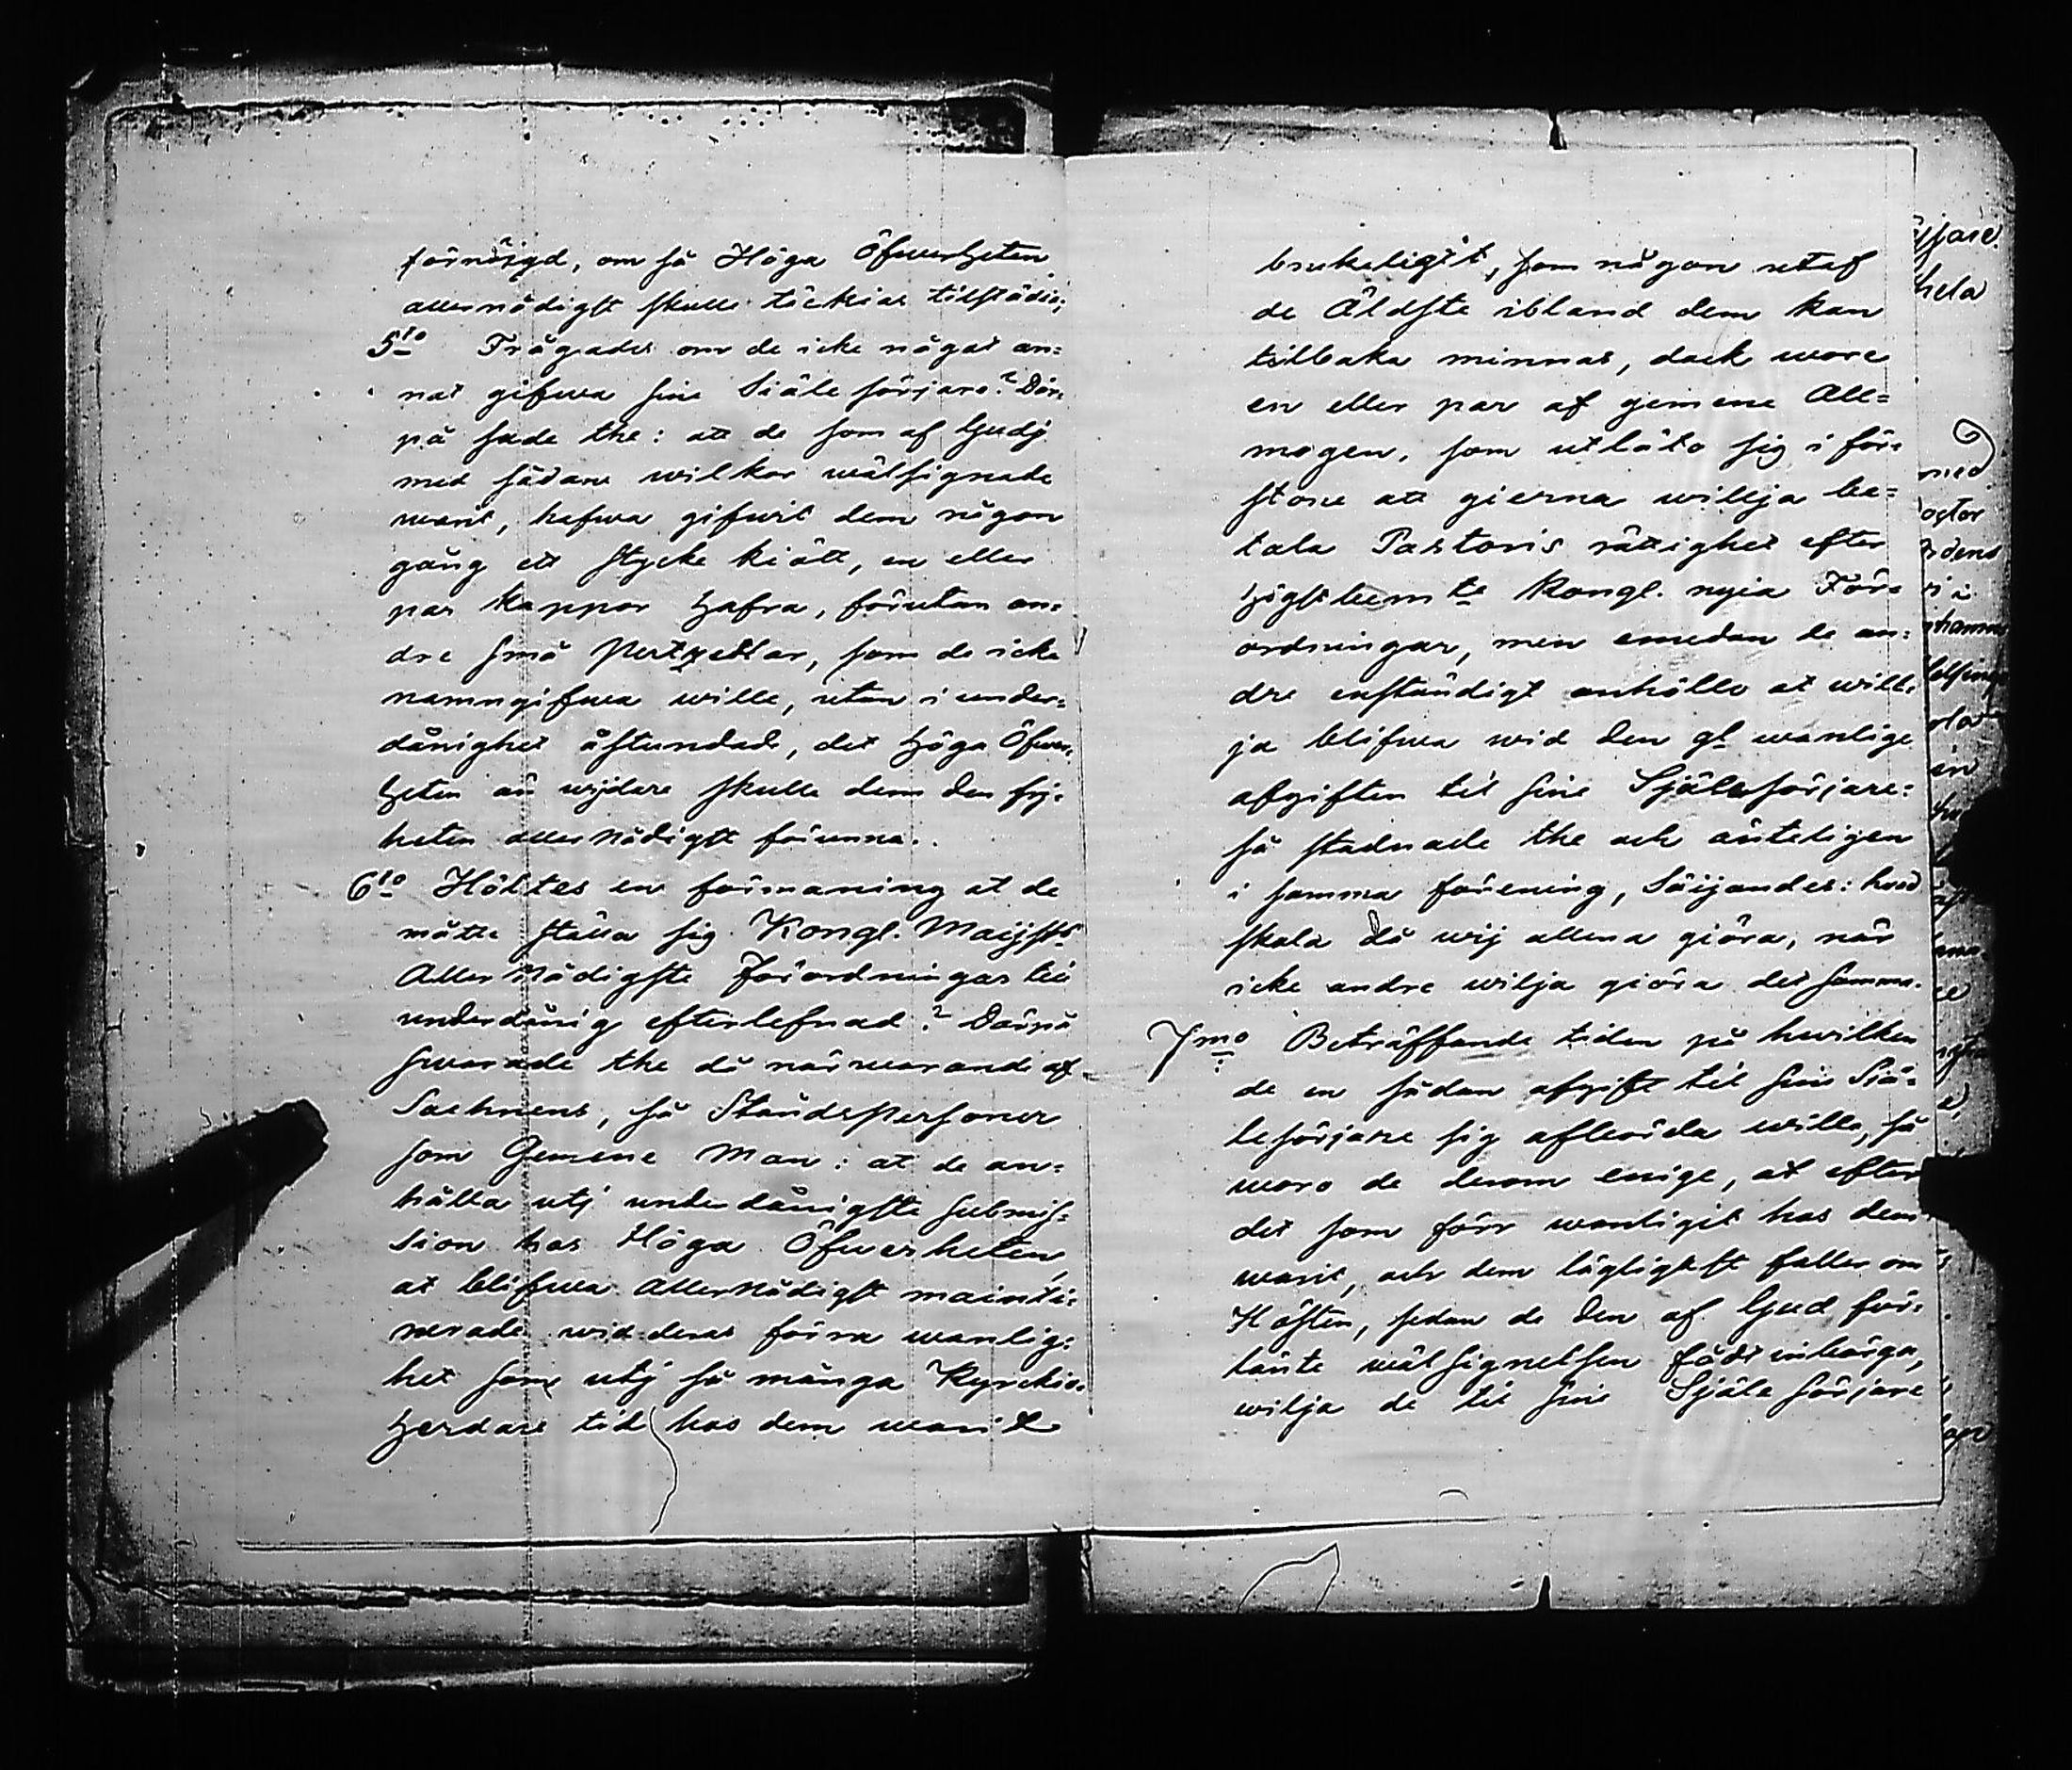 förnöijgd, om så Höga Öfwerheten
allernådigst skulle täckias tilstädia;
5to Frågades om de icke någat an=
nat gifwa sine Siäle sörjare? Där=
på sade the: att de som af Gudj
med sådane wilkor wälsignade
warit, hafwa gifwit dem någon
gång ett stycke kiött, en eller
par kappor Hafra, förutan an=
dre små Pertzedlar, som de icke
namngifwa wille, utan i under=
dånighet åstundade, det Höga Öfwer=
heten än wijdare skulle dem den frj=
heten allernådigst förunna.
6to Höltes en förmaning at de
måtte ställa sig Kongl. Maijsts
Aller Nådigste Förordningar till
underdånig efterlefnad? Därpå
swarade the då närwarande af
Sochnens, så Ståndspersoner
som Gemene Man: at de an=
hålla utj underdånigste submis=
sion hos Höga Öfwerheten,
at blifwa AllerNådigst mainti=
nerade wid deras förra wanlig=
het som utj så många Kyrckio=
herdare tid hos dem warit
brukeligit, som någon utaf
de Äldste ibland dem kan
tillbaka minnas, dock wore
en eller par af gemene All=
mogen, som utläto sig i för=
stone att gierna willja be=
tala Pastoris rättighet efter
högstbemte Kongl. nyia För=
ordningar, men emedan de an=
dre enständigt anhöllo at will=
ja blifwa wid den gl. wanlige
afgiften til sine Själasörjare:
så stadnade the och änteligen
i samma förening, Säijandes: hwad
skola då wij allena giöra, när
icke andre wilja giöra det samma.
7mo Beträffande tiden på hwilken
de en sådan afgift til sine Siä=
lesörjare sig afbörda wille, så
woro de derom enige, at efter
det som förr wanligit hos dem
warit, och dem lägligast faller om
Hösten, sedan de den af Gud för=
länte wälsignelsen fådt inbärga,
wilja de til sine Själa sörjare